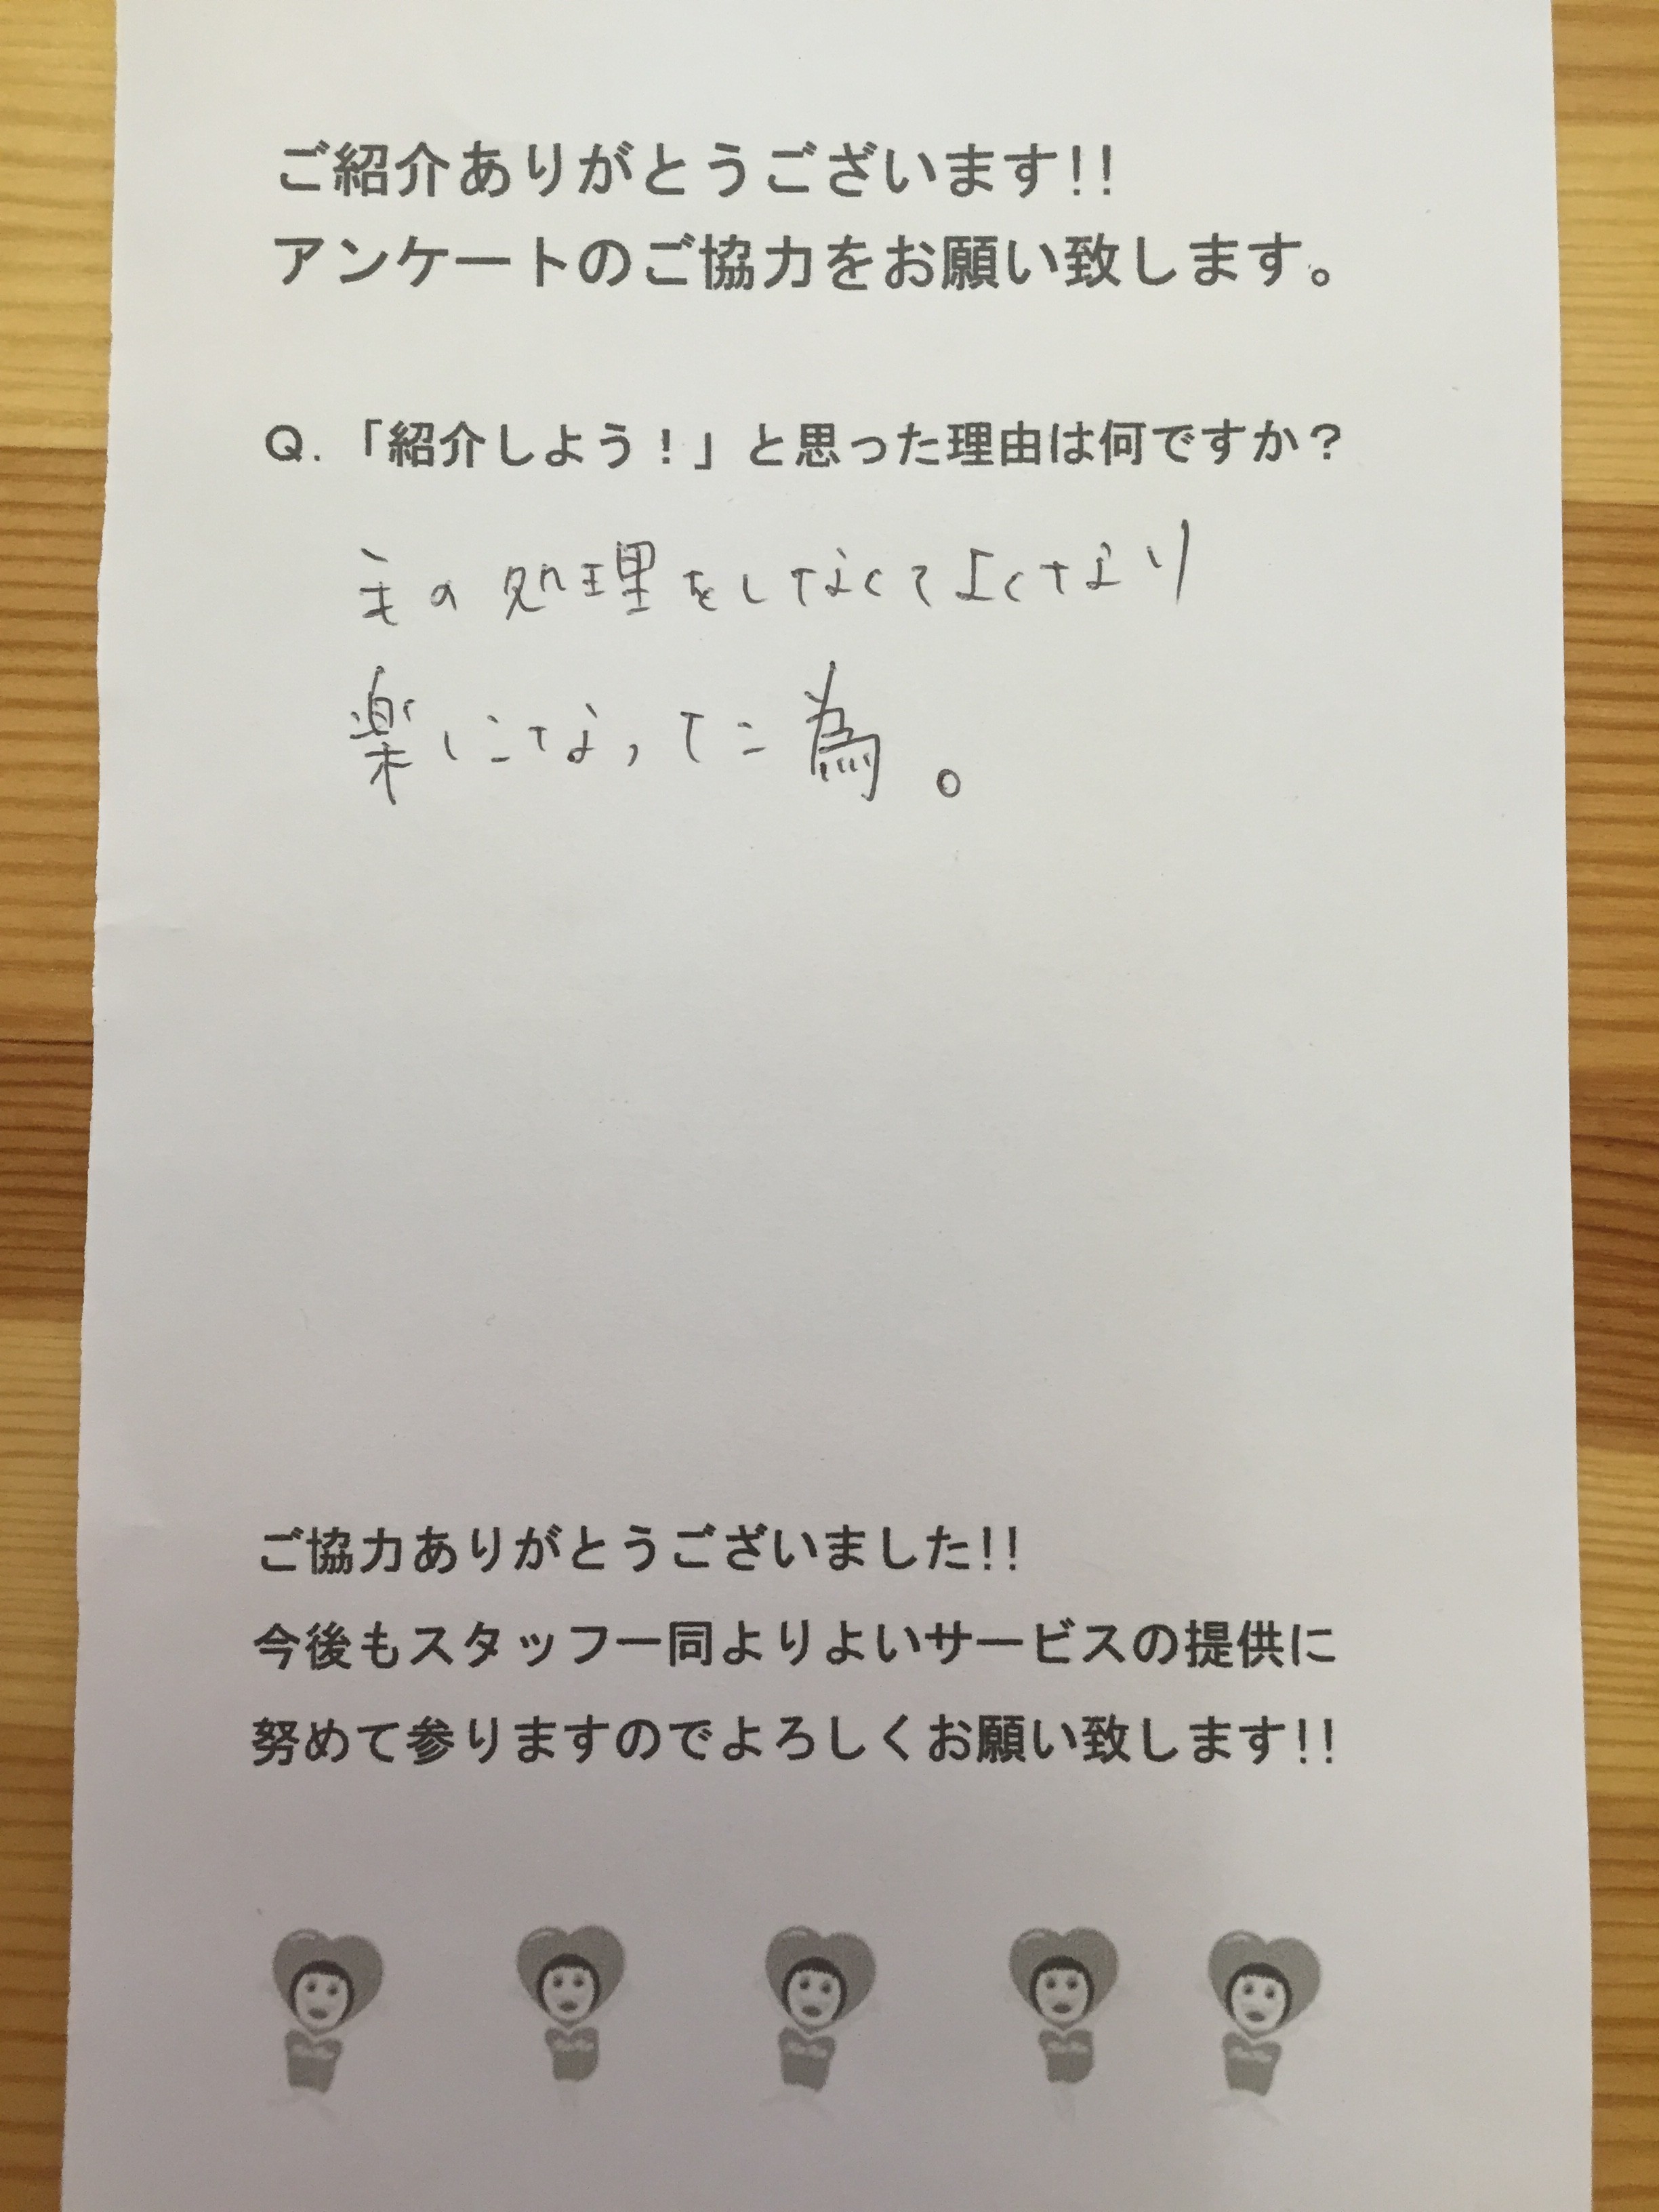 ご紹介ありがとうございます!!
アンケートのご協力をお願い致します。
Q.「紹介しよう！」と思った理由は何ですか？
毛の処理をしなくてよくなり
楽になった為。
ご協力ありがとうございました!!
今後もスタッフ一同よりよいサービスの提供に
努めて参りますのでよろしくお願い致します!!